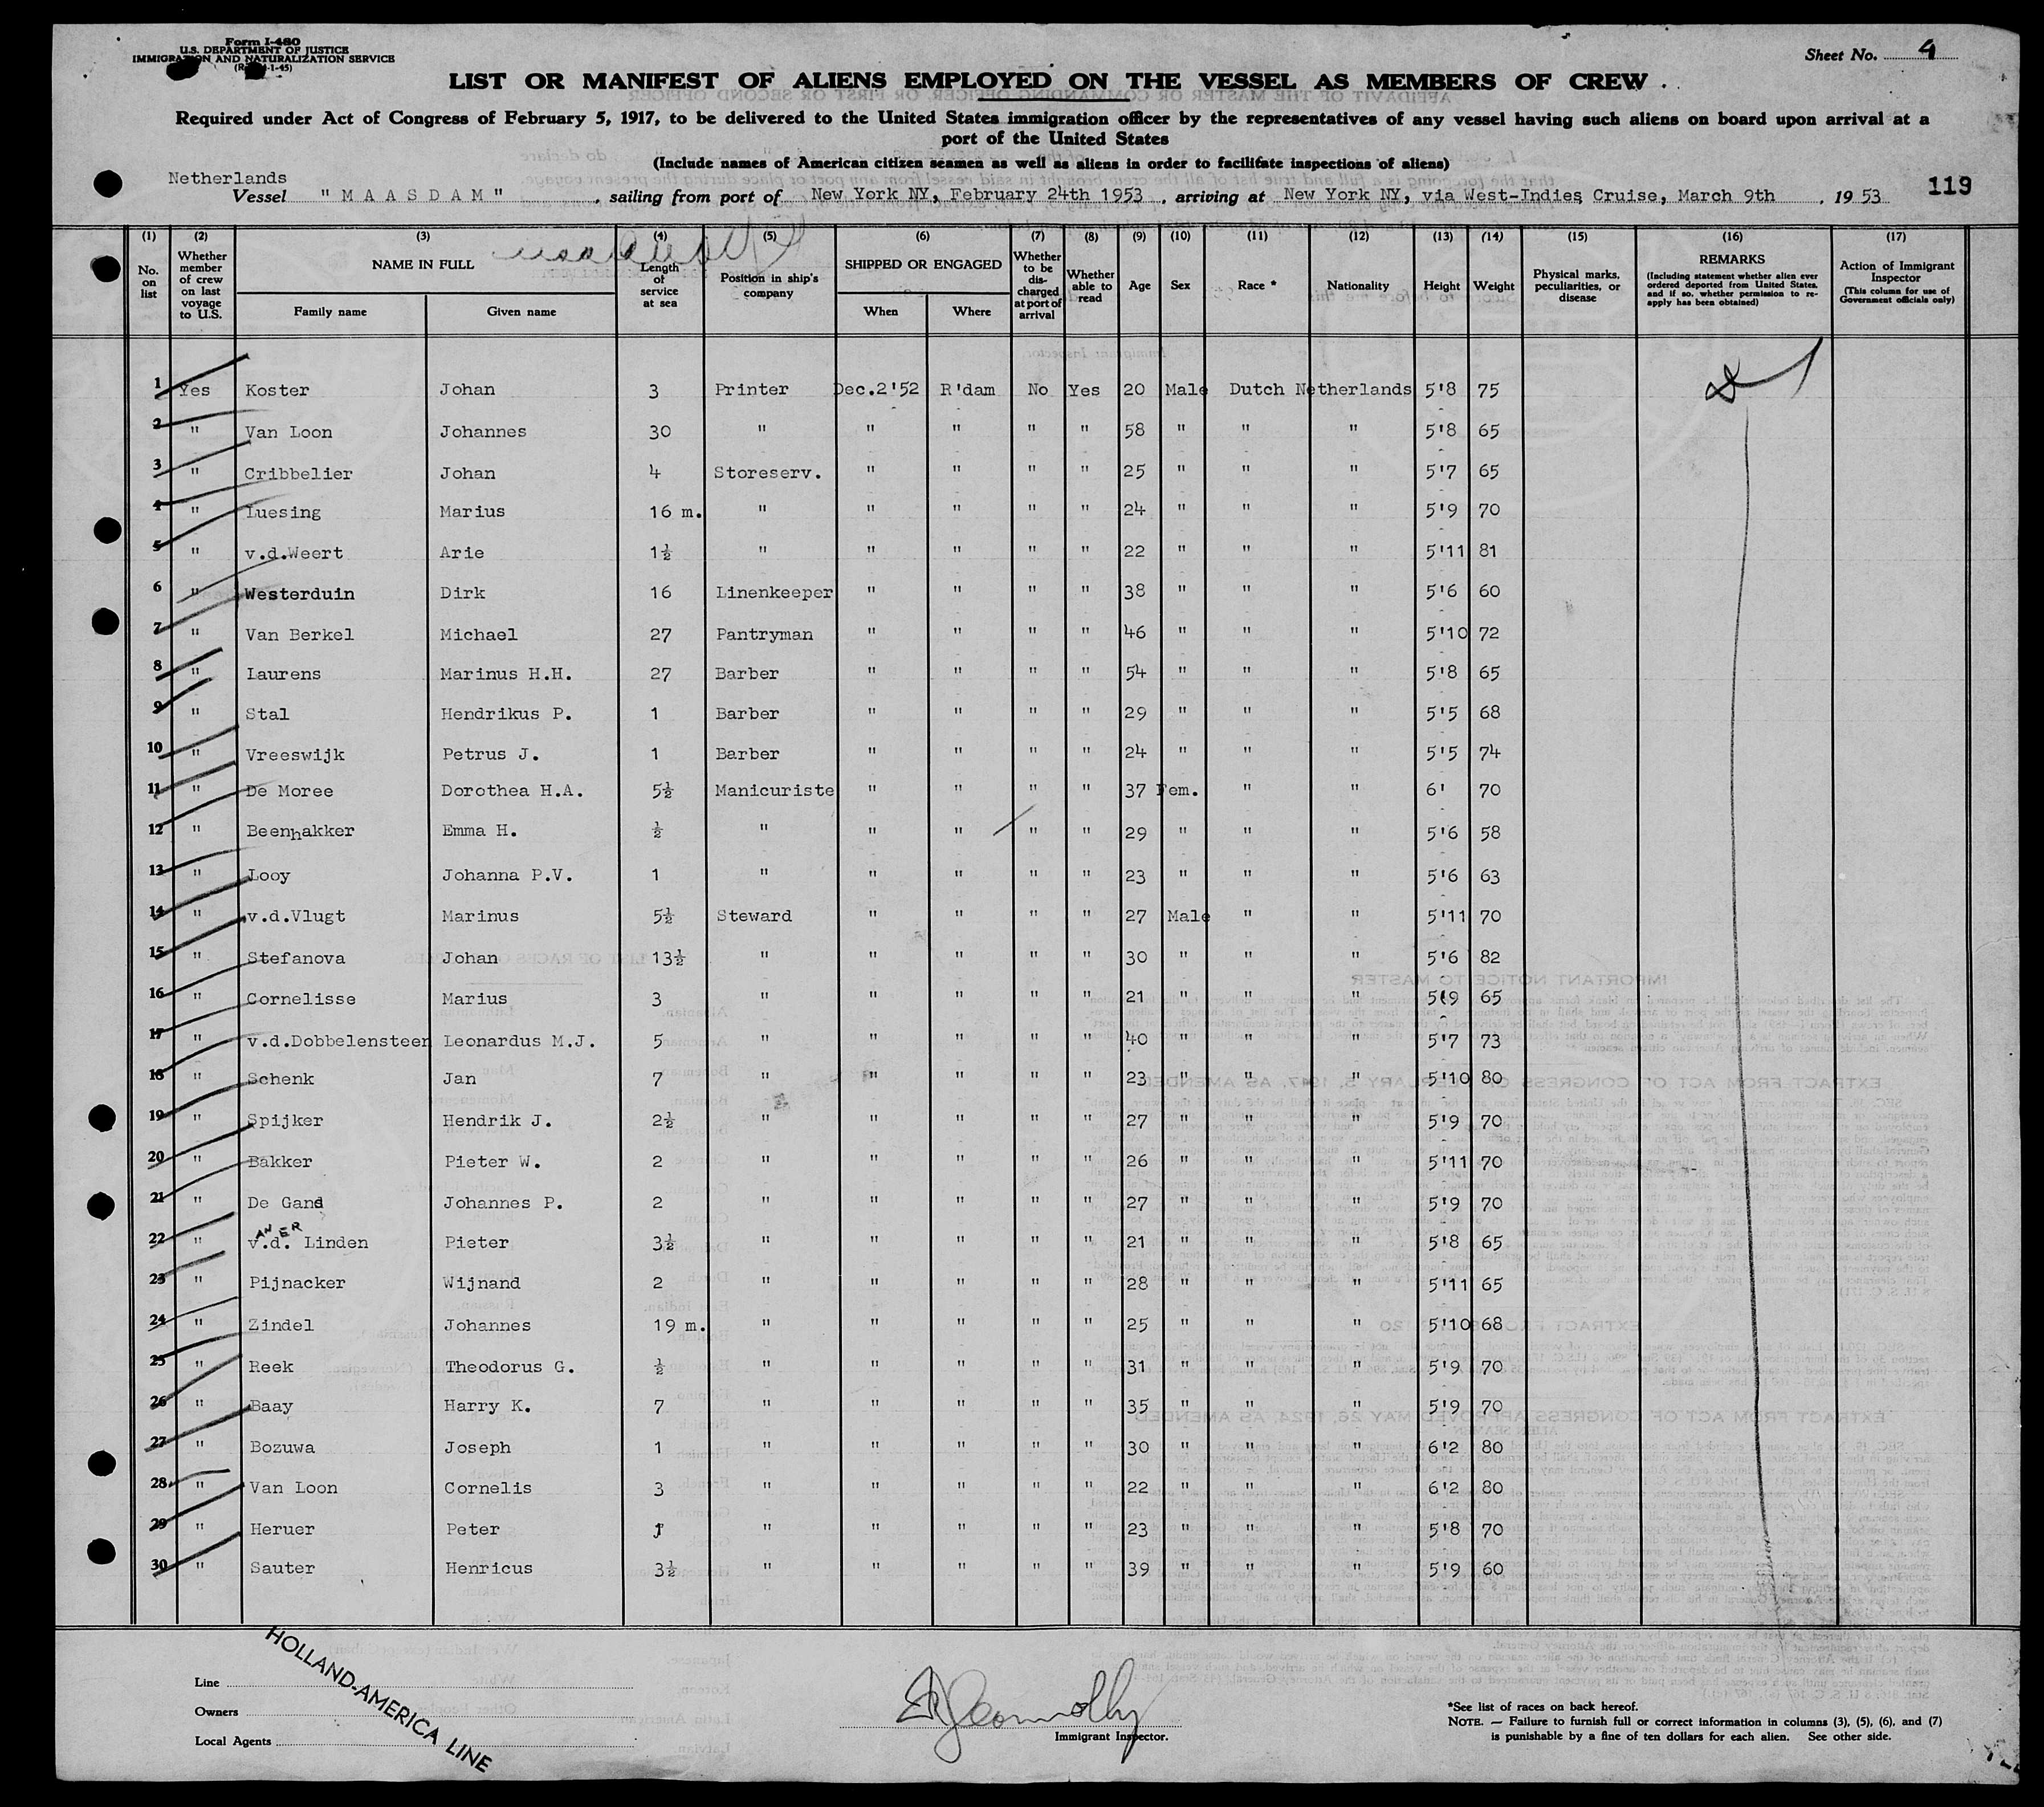 Form I-480
U.S. DEPARTMENT OF JUSTICE
IMMIGRATION AND NATURALIZATION SERVICE
Sheet No. 4
LIST OR MANIFEST OF ALIENS EMPLOYED ON THE VESSEL AS MEMBERS OF CREW
Required under Act of Congress of February 5, 1917, to be delivered to the United States immigration officer by the representatives of any vessel having such aliens on board upon arrival at a
port of the United States
(Include names of American citizen seamen as well as aliens in order to facilitate inspections of aliens)
Netherlands
Vessel "MAASDAM", sailing from port of New York NY, February 24th 1953, arriving at New York NY, via West-Indies Cruise, March 9th, 1953 119
(1) (2) (3) (4) (5) (6) (7) (8) (9) (10) (11) (12) (13) (14) (15) (16) (17)
No. on list | Whether member of crew on last voyage to U.S. | NAME IN FULL | Family name | Given name | Length of service at sea | Position in ship's company | SHIPPED OR ENGAGED | When | Where | Whether to be discharged at port of arrival | Whether able to read | Age | Sex | Race * | Nationality | Height | Weight | Physical marks, peculiarities, or disease | REMARKS (Including statement whether alien ever ordered deported from United States, and if so, whether permission to re-apply has been obtained) | Action of Immigrant Inspector (This column for use of Government officials only)
1 Yes Koster Johan 3 Printer Dec.2'52 R'dam No Yes 20 Male Dutch Netherlands 5'8 75
2 " Van Loon Johannes 30 " " " " " 58 " " " 5'8 65
3 " Cribbelier Johan 4 Storeserv. " " " " 25 " " " 5'7 65
4 " Luesing Marius 16 m. " " " " " 24 " " " 5'9 70
5 " v.d.Weert Arie 1½ " " " " " 22 " " " 5'11 81
6 " Westerduin Dirk 16 Linenkeeper " " " " 38 " " " 5'6 60
7 " Van Berkel Michael 27 Pantryman " " " " 46 " " " 5'10 72
8 " Laurens Marinus H.H. 27 Barber " " " " 54 " " " 5'8 65
9 " Stal Hendrikus P. 1 Barber " " " " 29 " " " 5'5 68
10 " Vreeswijk Petrus J. 1 Barber " " " " 24 " " " 5'5 74
11 " De Moree Dorothea H.A. 5½ Manicuriste " " " " 37 Fem. " " 6' 70
12 " Beenhakker Emma H. ½ " " " " " 29 " " " 5'6 58
13 " Looy Johanna P.V. 1 " " " " " 23 " " " 5'6 63
14 " v.d.Vlugt Marinus 5½ Steward " " " " 27 Male " " 5'11 70
15 " Stefanova Johan 13½ " " " " " 30 " " " 5'6 82
16 " Cornelisse Marius 3 " " " " " 21 " " " 5'9 65
17 " v.d.Dobbelensteen Leonardus M.J. 5 " " " " " 40 " " " 5'7 73
18 " Schenk Jan 7 " " " " " 23 " " " 5'10 80
19 " Spijker Hendrik J. 2½ " " " " " 27 " " " 5'9 70
20 " Bakker Pieter W. 2 " " " " " 26 " " " 5'11 70
21 " De Gand Johannes P. 2 " " " " " 27 " " " 5'9 70
AN ER
22 " v.d. Linden Pieter 3½ " " " " " 21 " " " 5'8 65
23 " Pijnacker Wijnand 2 " " " " " 28 " " " 5'11 65
24 " Zindel Johannes 19 m. " " " " " 25 " " " 5'10 68
25 " Reek Theodorus G. ½ " " " " " 31 " " " 5'9 70
26 " Baay Harry K. 7 " " " " " 35 " " " 5'9 70
27 " Bozuwa Joseph 1 " " " " " 30 " " " 6'2 80
28 " Van Loon Cornelis 3 " " " " " 22 " " " 6'2 80
29 " Heruer Peter " " " " " 23 " " " 5'8 70
30 " Sauter Henricus 3½ " " " " " 39 " " " 5'9 60
HOLLAND-AMERICA LINE
Line
Owners
Local Agents
Connolly
Immigrant Inspector.
*See list of races on back hereof.
NOTE. — Failure to furnish full or correct information in columns (3), (5), (6), and (7)
is punishable by a fine of ten dollars for each alien. See other side.